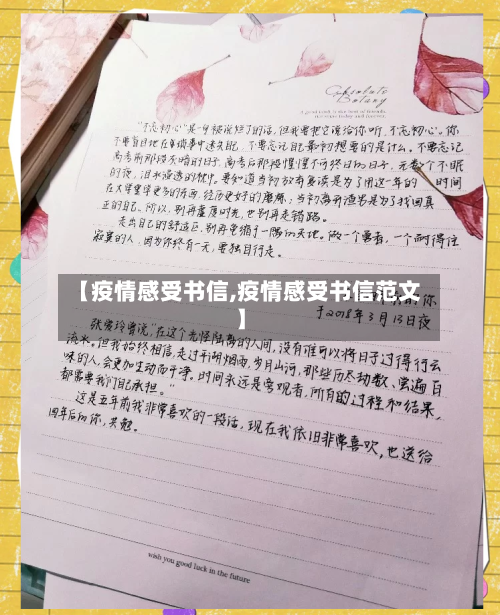 Absolute
Botany
"不忘初心"是一年被说烂了的话,但我要把它读给你听,不忘初心。你
不要盲目地在琐事中迷失自己,不要忘记自己最初想要的是什么。不要忘记
高考前那段灰暗的日子,高考后那段惶惶不可终日的日子,无数个不眠
的夜,泪水浸透的枕巾。要知道当初放弃复读是为了用这一年的 时间
在大学里学更多的东西,经历更好的磨砺;当初离开酒泉是为了找回真
正的自己。所以,别再荒废时光,也别再走错路。
走出自己的舒适区,别再电缩于一隅的天地。做一个勇者,一个耐得住
寂寞的人,因为你终有一天,要独自行走。
你
于2018年3月13日夜
【疫情感受书信,疫情感受书信范文
】
张爱玲曾说,"在这个光怪陆离的人间,没有谁可以将日子过得行云
流水。但我始终相信,走过平湖烟雨,岁月山河,那些历尽劫数、尝遍百
味的人,会更加生动而干净。时间永远是旁观者,所有的过程和结果,
都需要我们自己承担。"
这是五年前我非常喜欢的一段话,现在我依旧非常喜欢,也送给
四年后的你,共勉。
wish you good luck in the future